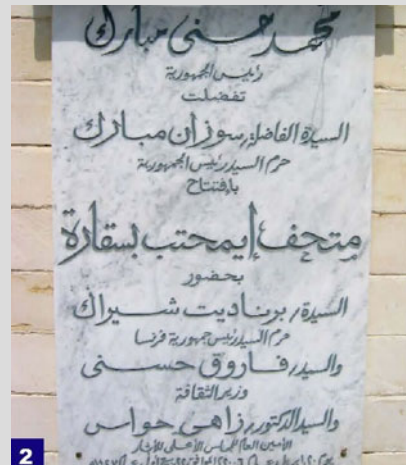 محمد حسنى مبارك
رئيس الجمهورية
تفضلت
السيدة الفاضلة/سوزان مبارك
حرم السيد رئيس الجمهورية
بإفتتاح
متحف إيمحتب بسقارة
بحضور
السيدة/برناديت شيراك
حرم السيد رئيس جمهورية فرنسا
والسيد/فاروق حسنى
وزير الثقافة
والسيد الدكتور/زاهى حواس
الأمين العام للمجلس الأعلى للآثار
2